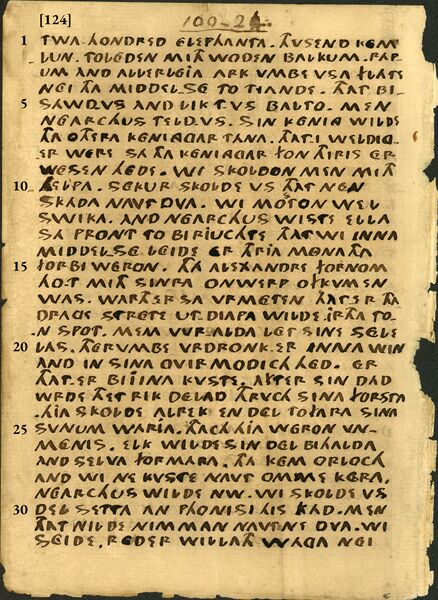 [124]
100-24
1 TWA.HONDRED ELEPHANTA. ÞUSEND KEM
LUN. TOLEDEN MIÞ WODEN BALKUM. RAP
UM AND ALLERLEJA ARK UMBE VSA FLATE
NEI ÞA MIDDELSE TO TIANDE. ÞAT BI
5 SAWDVS AND LIKTVS BALTO. MEN
NEARCHUS TELDVS. SIN KENIG WILDE
ÞA OÞERA KENIGGAR TANA. ÞAT.I WELDIG
ER WERE SA ÞA KENIGGAR FON ÞIRIS ER
WESEN HEDE. WI SKOLDON MEN MIÞ
10 HELPA. SEKUR SKOLDE VS ÞAT NEN
SKADA NAVT DVA. WI MOSTON WEL
SWIKA. AND NEARCHUS WISTE ELLA
SA PRONT TO BIRJUCHTE ÞAT WI INNA
MIDDELSE LEIDE ER ÞRIA MONAÞA
15 FORBI WERON. ÞA ALEXANDRE FORNOM
HO-T MIÞ SINRA ONWERP OFKUMEN
WAS. WARÞ.ER SA VRMETEN ÞAT ER ÞA
DRAGE STRETE UT DIAPA WILDE. IRÞA TO-
N SPOT. MEN WR.ALDA LET SINE SELE
20 LAS. ÞERVMBE VRDRONK.ER INNA WIN
AND IN SINA OVIRMODICHHED. ER
ÞAT.ER BIJINA KUSTE. AFTER SIN DAD
WRDE ÞET RIK DELAD ÞRVCH SINA FORSTA
.HIA SKOLDE ALREK EN DEL TO FARA SINA
25 SUNUM WARIA. ÞACH HIA WERON UN-
MENIS. ELK WILDE SIN DEL BIHALDA
AND SELVA FORMARA. ÞA KEM ORLOCH
AND WI NE KVSTE NAVT OMME KERA.
NEARCHUS WILDE NW. WI SKOLDE VS
30 DEL SETTA AN PHONISI HIS KAD. MEN
ÞAT NILDE NIMMAN NAVT NE DVA. WI
SEIDE. REDER WILLAÞ WAGA NEI